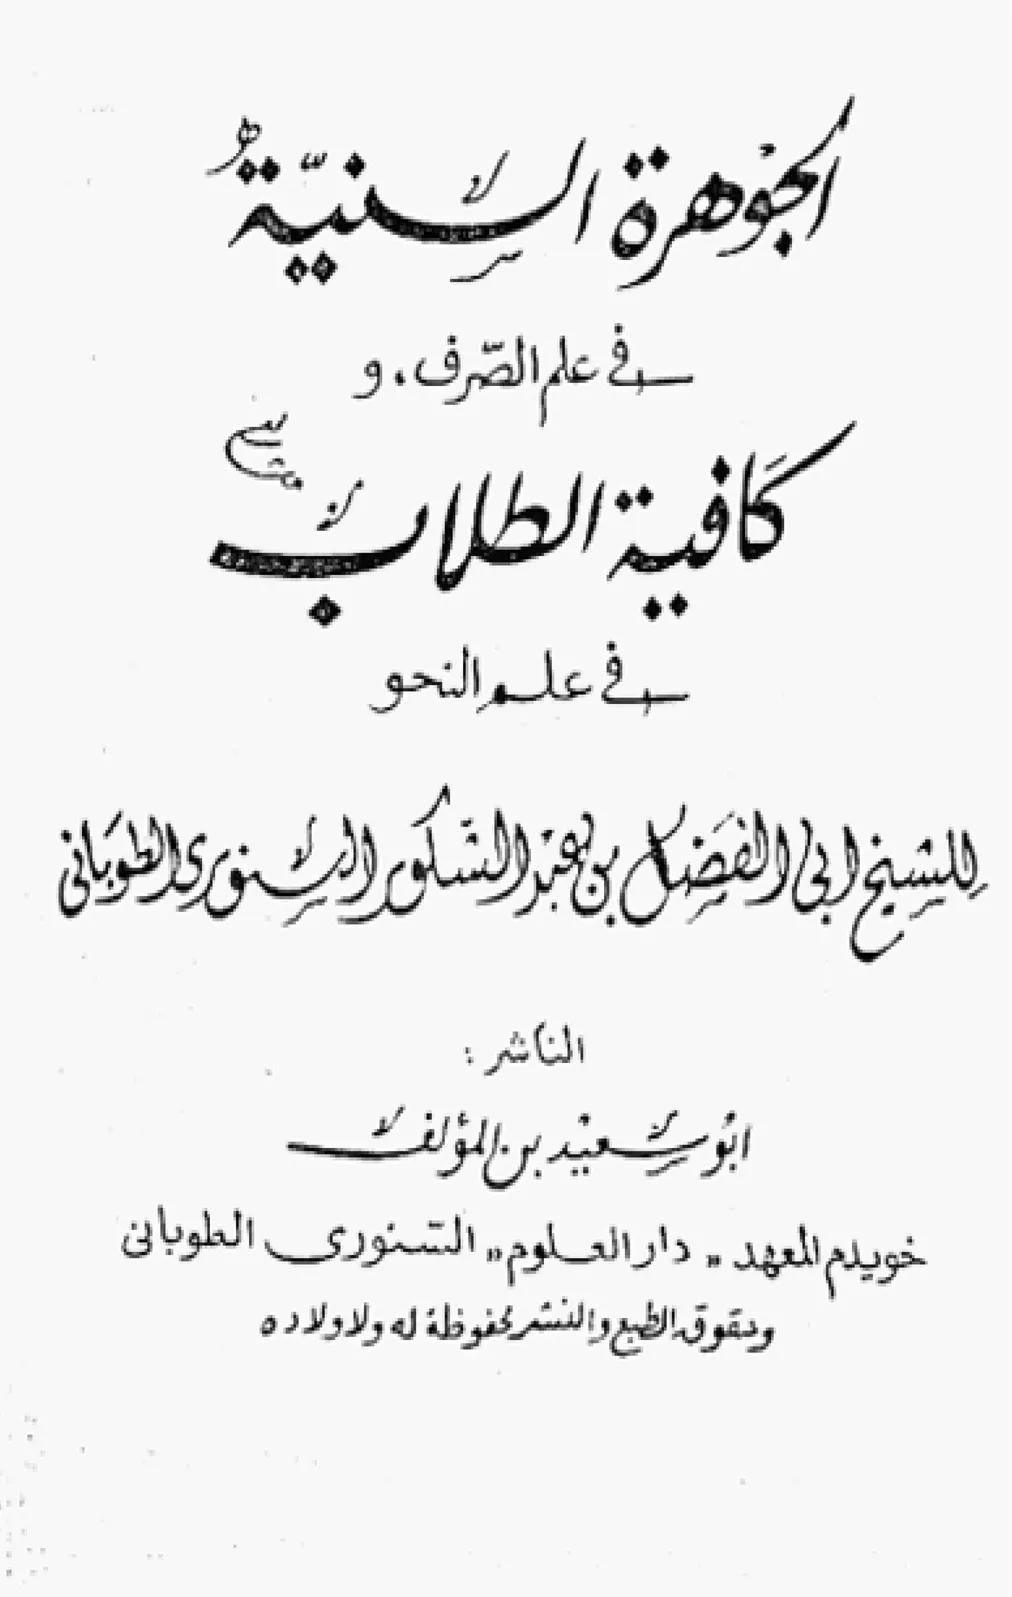 الجوهرة السنيّة
في علم الصّرف، و
كَافية الطلاب
في علم النحو
للشيخ ابى الفَضل بن عبد الشّكور السنورى الطوبانى
الناشر :
ابو سعيد بن المؤلف
خويدم المعهد „ دار العلوم „ السنورى الطوبانى
وحقوق الطبع والنشر محفوظة له ولاولاده